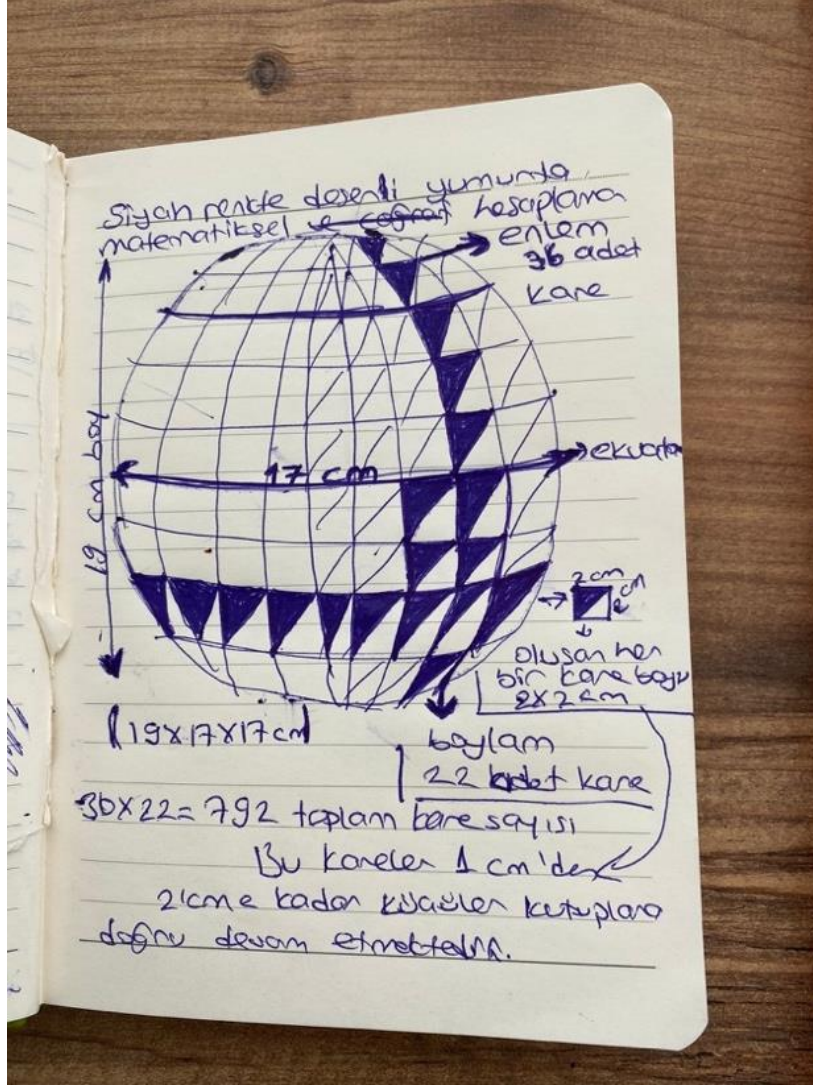 Siyah renkte desenli yumurta
matematiksel ve coğrafi hesaplama
enlem
36 adet
kare
19 cm boy
17 cm
ekvator
2 cm
2 cm
oluşan her
bir kare boyu
2x2 cm
(19x17x17 cm)
boylam
22 adet kare
36x22= 792 toplam kare sayısı
Bu kareler 1 cm'den
2 cm e kadar küçüler kutuplara
doğru devam etmektedir.